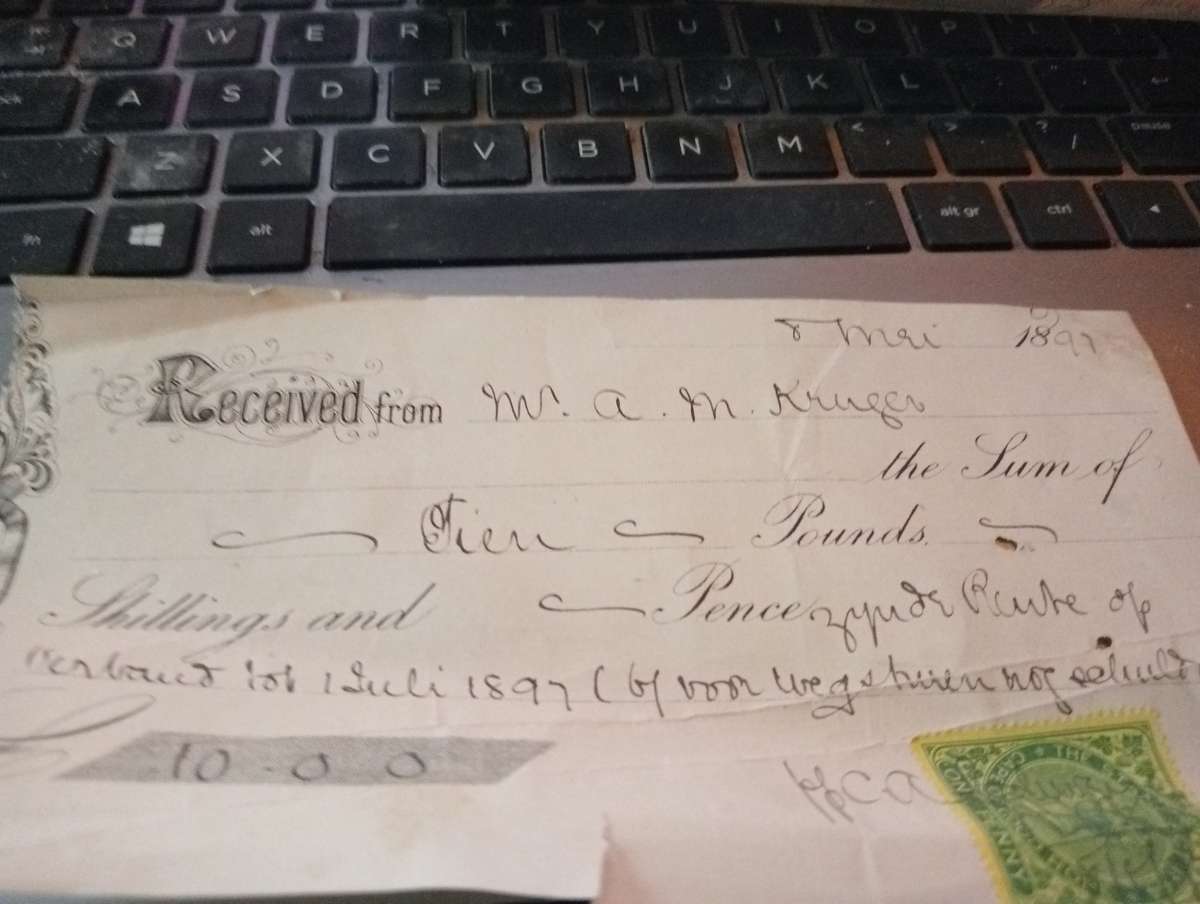 Q W E R T Y U I O P
A S D F G H J K L
Z X C V B N M < , > . ? /
alt alt gr ctrl
8 Mei 1897
Received from Mr. A. M. Kruger
the Sum of
Tien Pounds
Shillings and Pence zynde Rente op
verband tot 1 Juli 1897 ( voor wegsturen nog schuld
10 - 0 0
THE